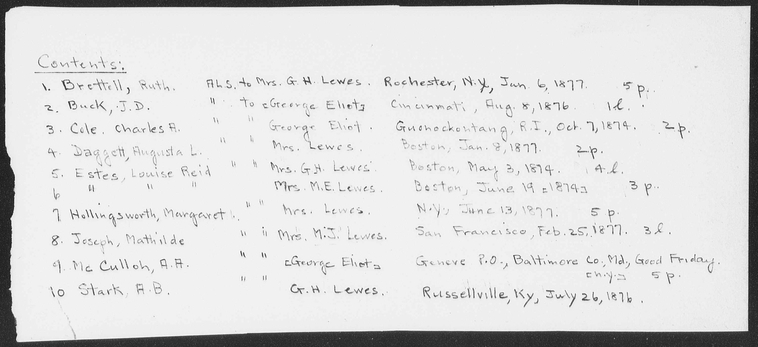 Contents:
1. Brettell, Ruth. A.L.S. to Mrs. G.H. Lewes. Rochester, N.Y., Jan. 6, 1877. 5 p.
2. Buck, J.D. " " to [George Eliot] Cincinnati, Aug. 8, 1876. 1 l.
3. Cole, Charles A. " " George Eliot. Quonochontaug, R.I., Oct. 7, 1874. 2 p.
4. Daggett, Augusta L. " " Mrs. Lewes. Boston, Jan. 8, 1877. 2 p.
5. Estes, Louise Reid " " Mrs. G.H. Lewes Boston, May 3, 1874. 4 l.
6 " " Mrs. M.E. Lewes. Boston, June 19 [1874] 3 p.
7 Hollingsworth, Margaret " " Mrs. Lewes. N.Y., June 13, 1877. 5 p.
8. Joseph, Mathilde " " Mrs. M.J. Lewes. San Francisco, Feb. 25, 1877. 3 l.
9. Mc Culloh, A.A. " " [George Eliot] Geneva P.O., Baltimore Co. Md., Good Friday.
[n.y.] 5 p.
10 Stark, A.B. " " G.H. Lewes. Russellville, Ky, July 26, 1876.